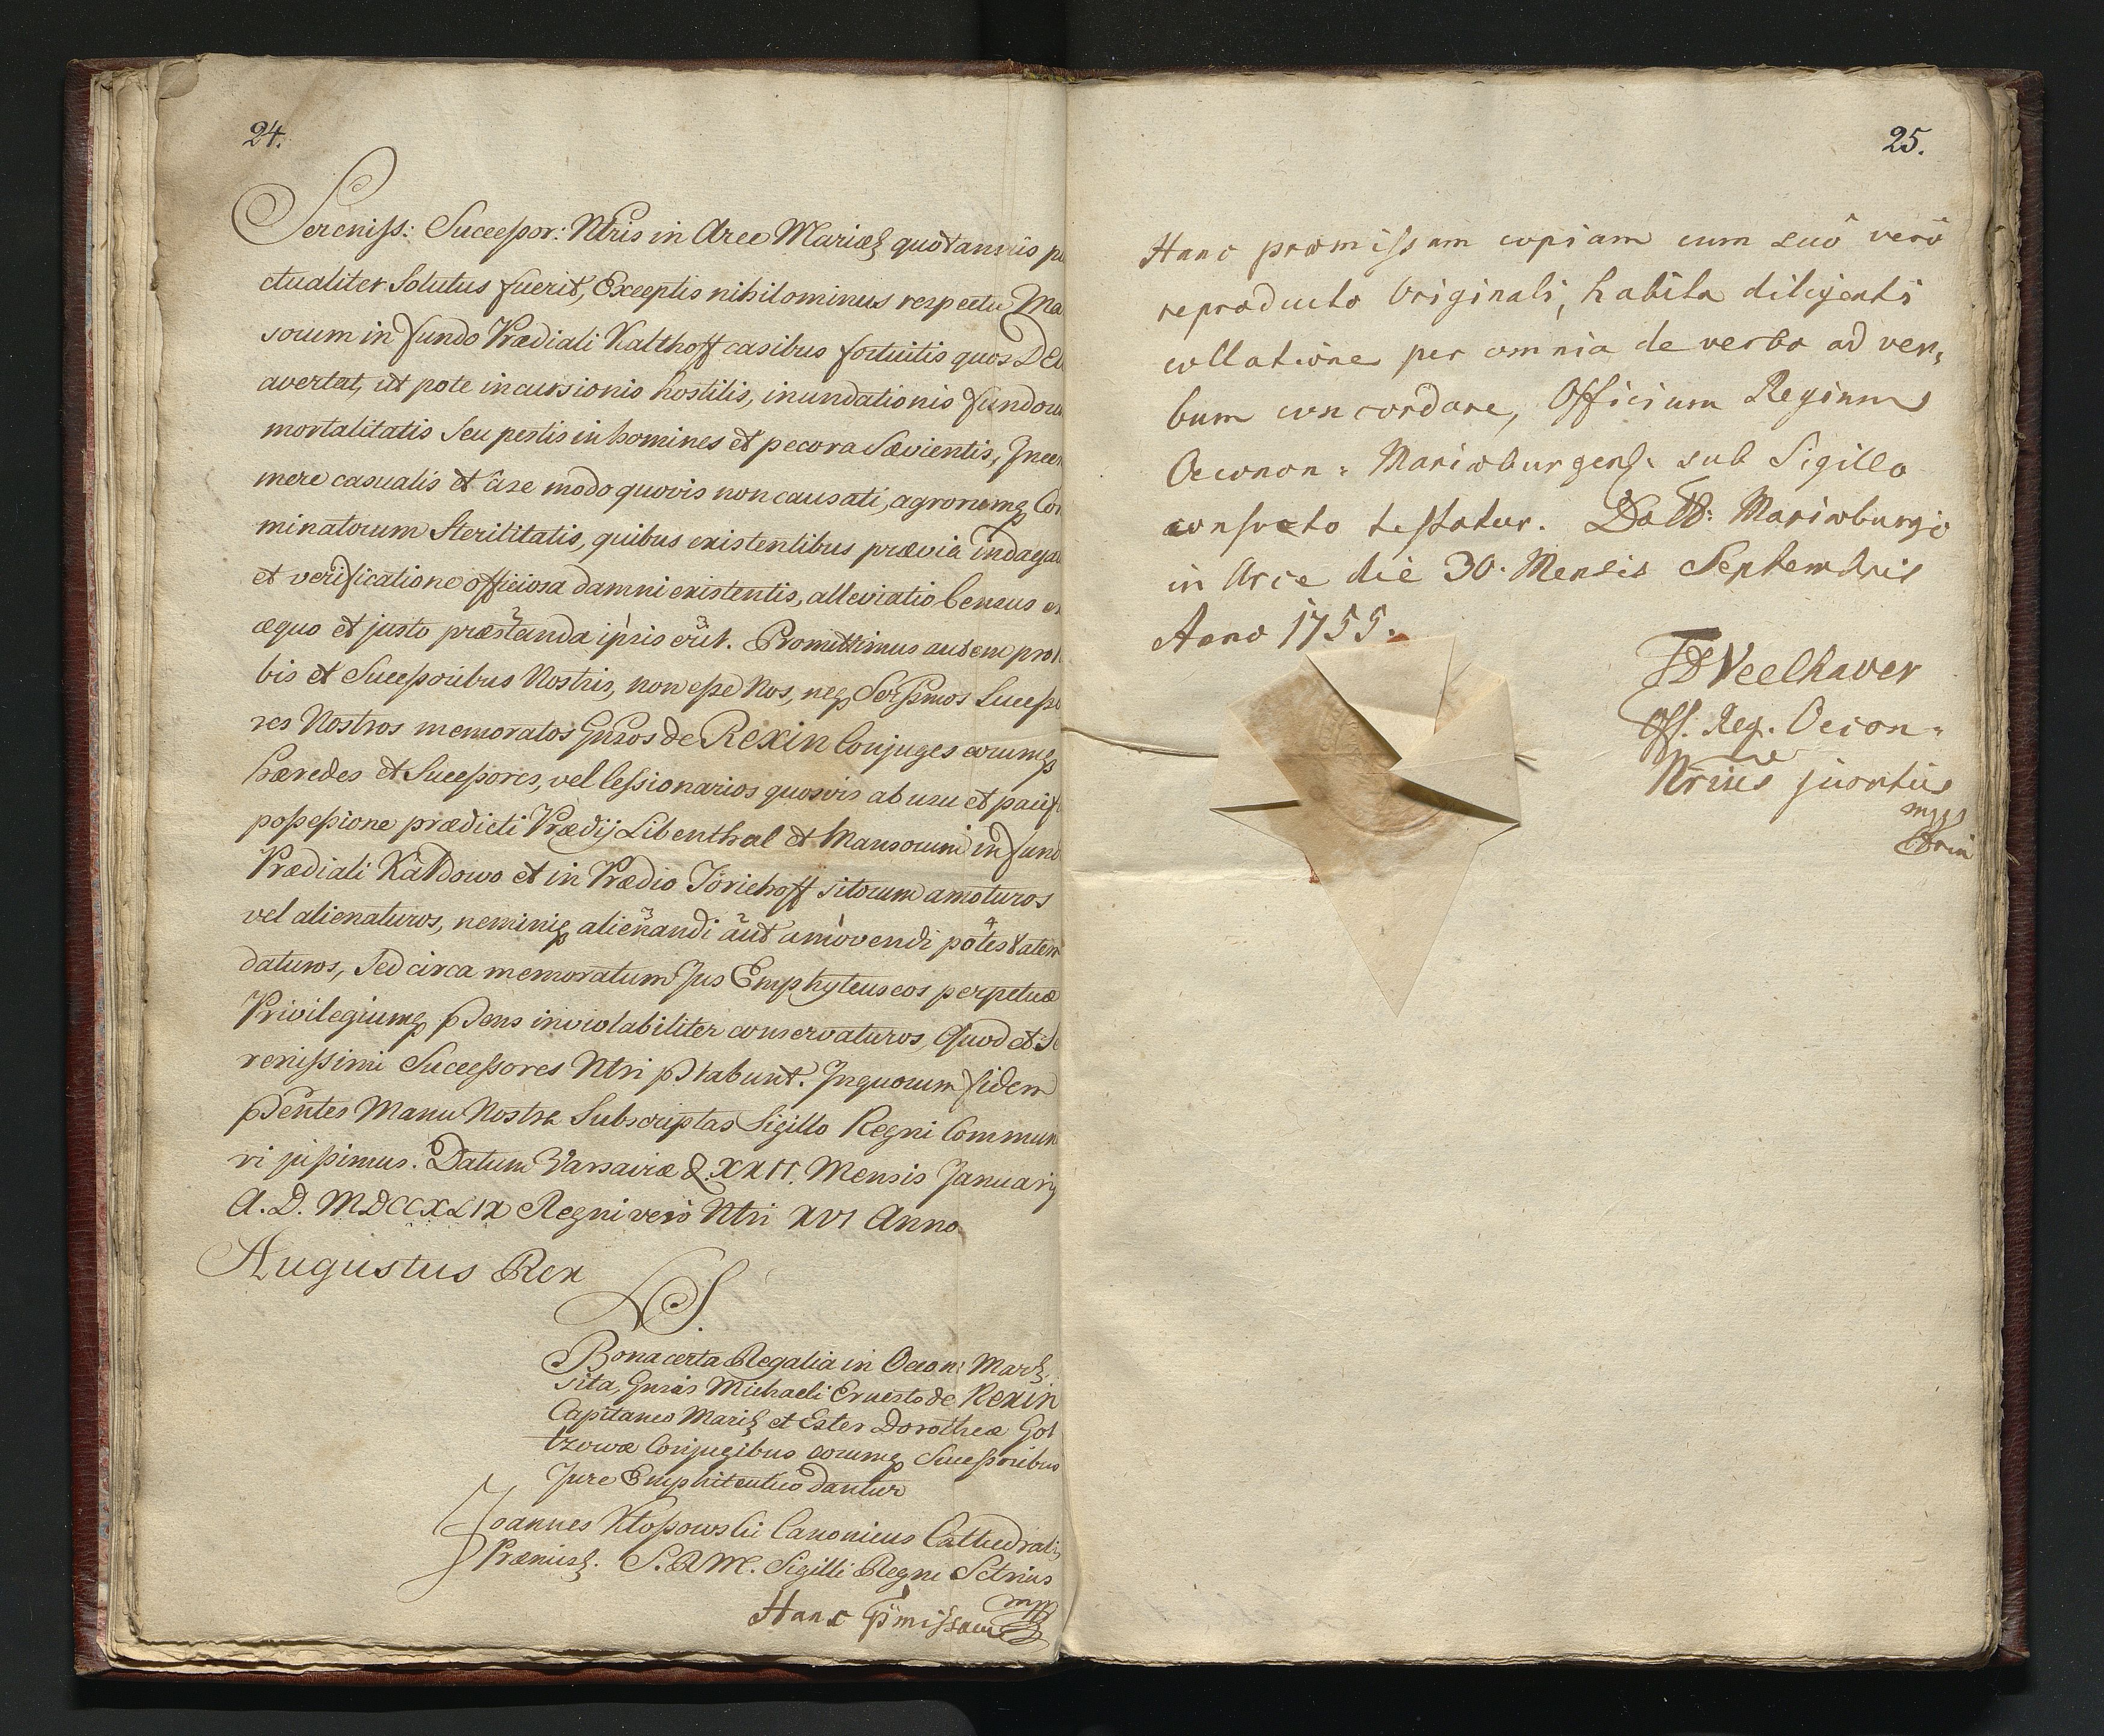 24.
Sereniss: Successor: Ntris in Arce Mariæb quotannis pu
ctualiter Solutus fuerit, Exceptis nihilominus respectu Man
sorum in fundo Prædiali Kalthoff casibus fortuitis quos DEus
avertat, ut pote incursionis hostilis, inundationis fundorum
mortalitatis Seu pestis in homines et pecora Sævientis, Incen
mere casualis et à se modo quovis non causati, agrorumq Con
minatorum Sterilitatis, quibus existentibus præviâ indaga
et verificatione officiosa damni existentis, alleviatio Census ex
æquo et justo præstanda ipsis erit. Promittimus autem pro No
bis et Successoribus Nostris, non esse Nos, neq Serssmos Successo
res Nostros memoratos Gnsos de REXIN Conjuges eorumq
hæredes et Successores, vel Cessionarios quosvis ab usu et pacif
possessione prædicti Prædij Libenthal et Mansorum in fund
Prædiali Kałdowo et in Prædio Jöriehoff sitorum amoturos
vel alienaturos, neminiq alienandi aut amovendi potestatem
daturos, Sed circa memoratum Jus Emphyteuseos perpetuæ
Privilegiumq pdens inviolabiliter conservaturos, Quod et Se
renissimi Successores Ntri pstabunt. In quorum fidem
pdentes Manu Nostra Subscriptas Sigillo Regni Commun
ri jussimus. Datum Varsaviæ d. XXII. Mensis January
A. D. MDCCXLIX Regni vero Ntri XVI Anno
Augustus Rex
LS.
Bona certa Regalia in Oecon: Marb.
sita, Gnsis Michaeli Ernesto de Rexin
Capitaneo Marib et Ester Dorotheæ Gol
tzowæ Conjugibus eorumq Successoribus
Jure Emphiteutico dantur
Joannes Kłossowski Canonicus Cathedralis
Præmisl. S.R.M. Sigilli Regni Sctrius
mpp
Hanc pmissam
25.
Hanc præmissam copiam cum suô verô
reproducto Originali, habita diligenti
collatione per omnia de verbo ad ver,
bum concordare, Officium Regium
Oeconon: Mariæburgens. sub Sigillo
consveto testatur. Datt: Mariæburgi
in Arce die 30. Mensis Septembris
Anno 1755.
Veelhaver
Off. Reg. Oecon.
Nrius juratus
mpp